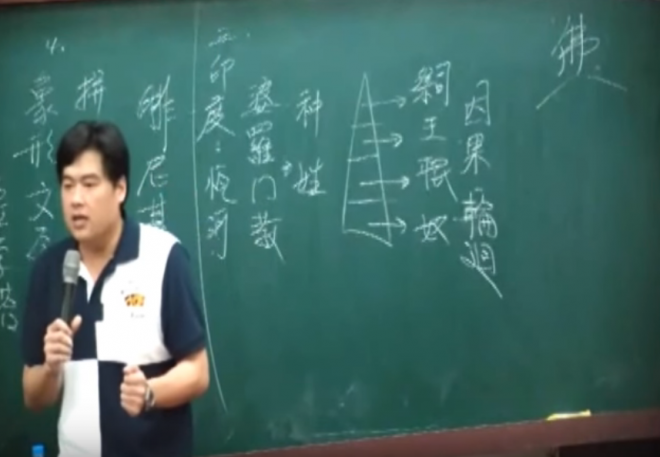 象形文
拼
腓尼基
五、
印度：恆河
婆羅門教
→种姓
王
奴
因果輪迴
佛